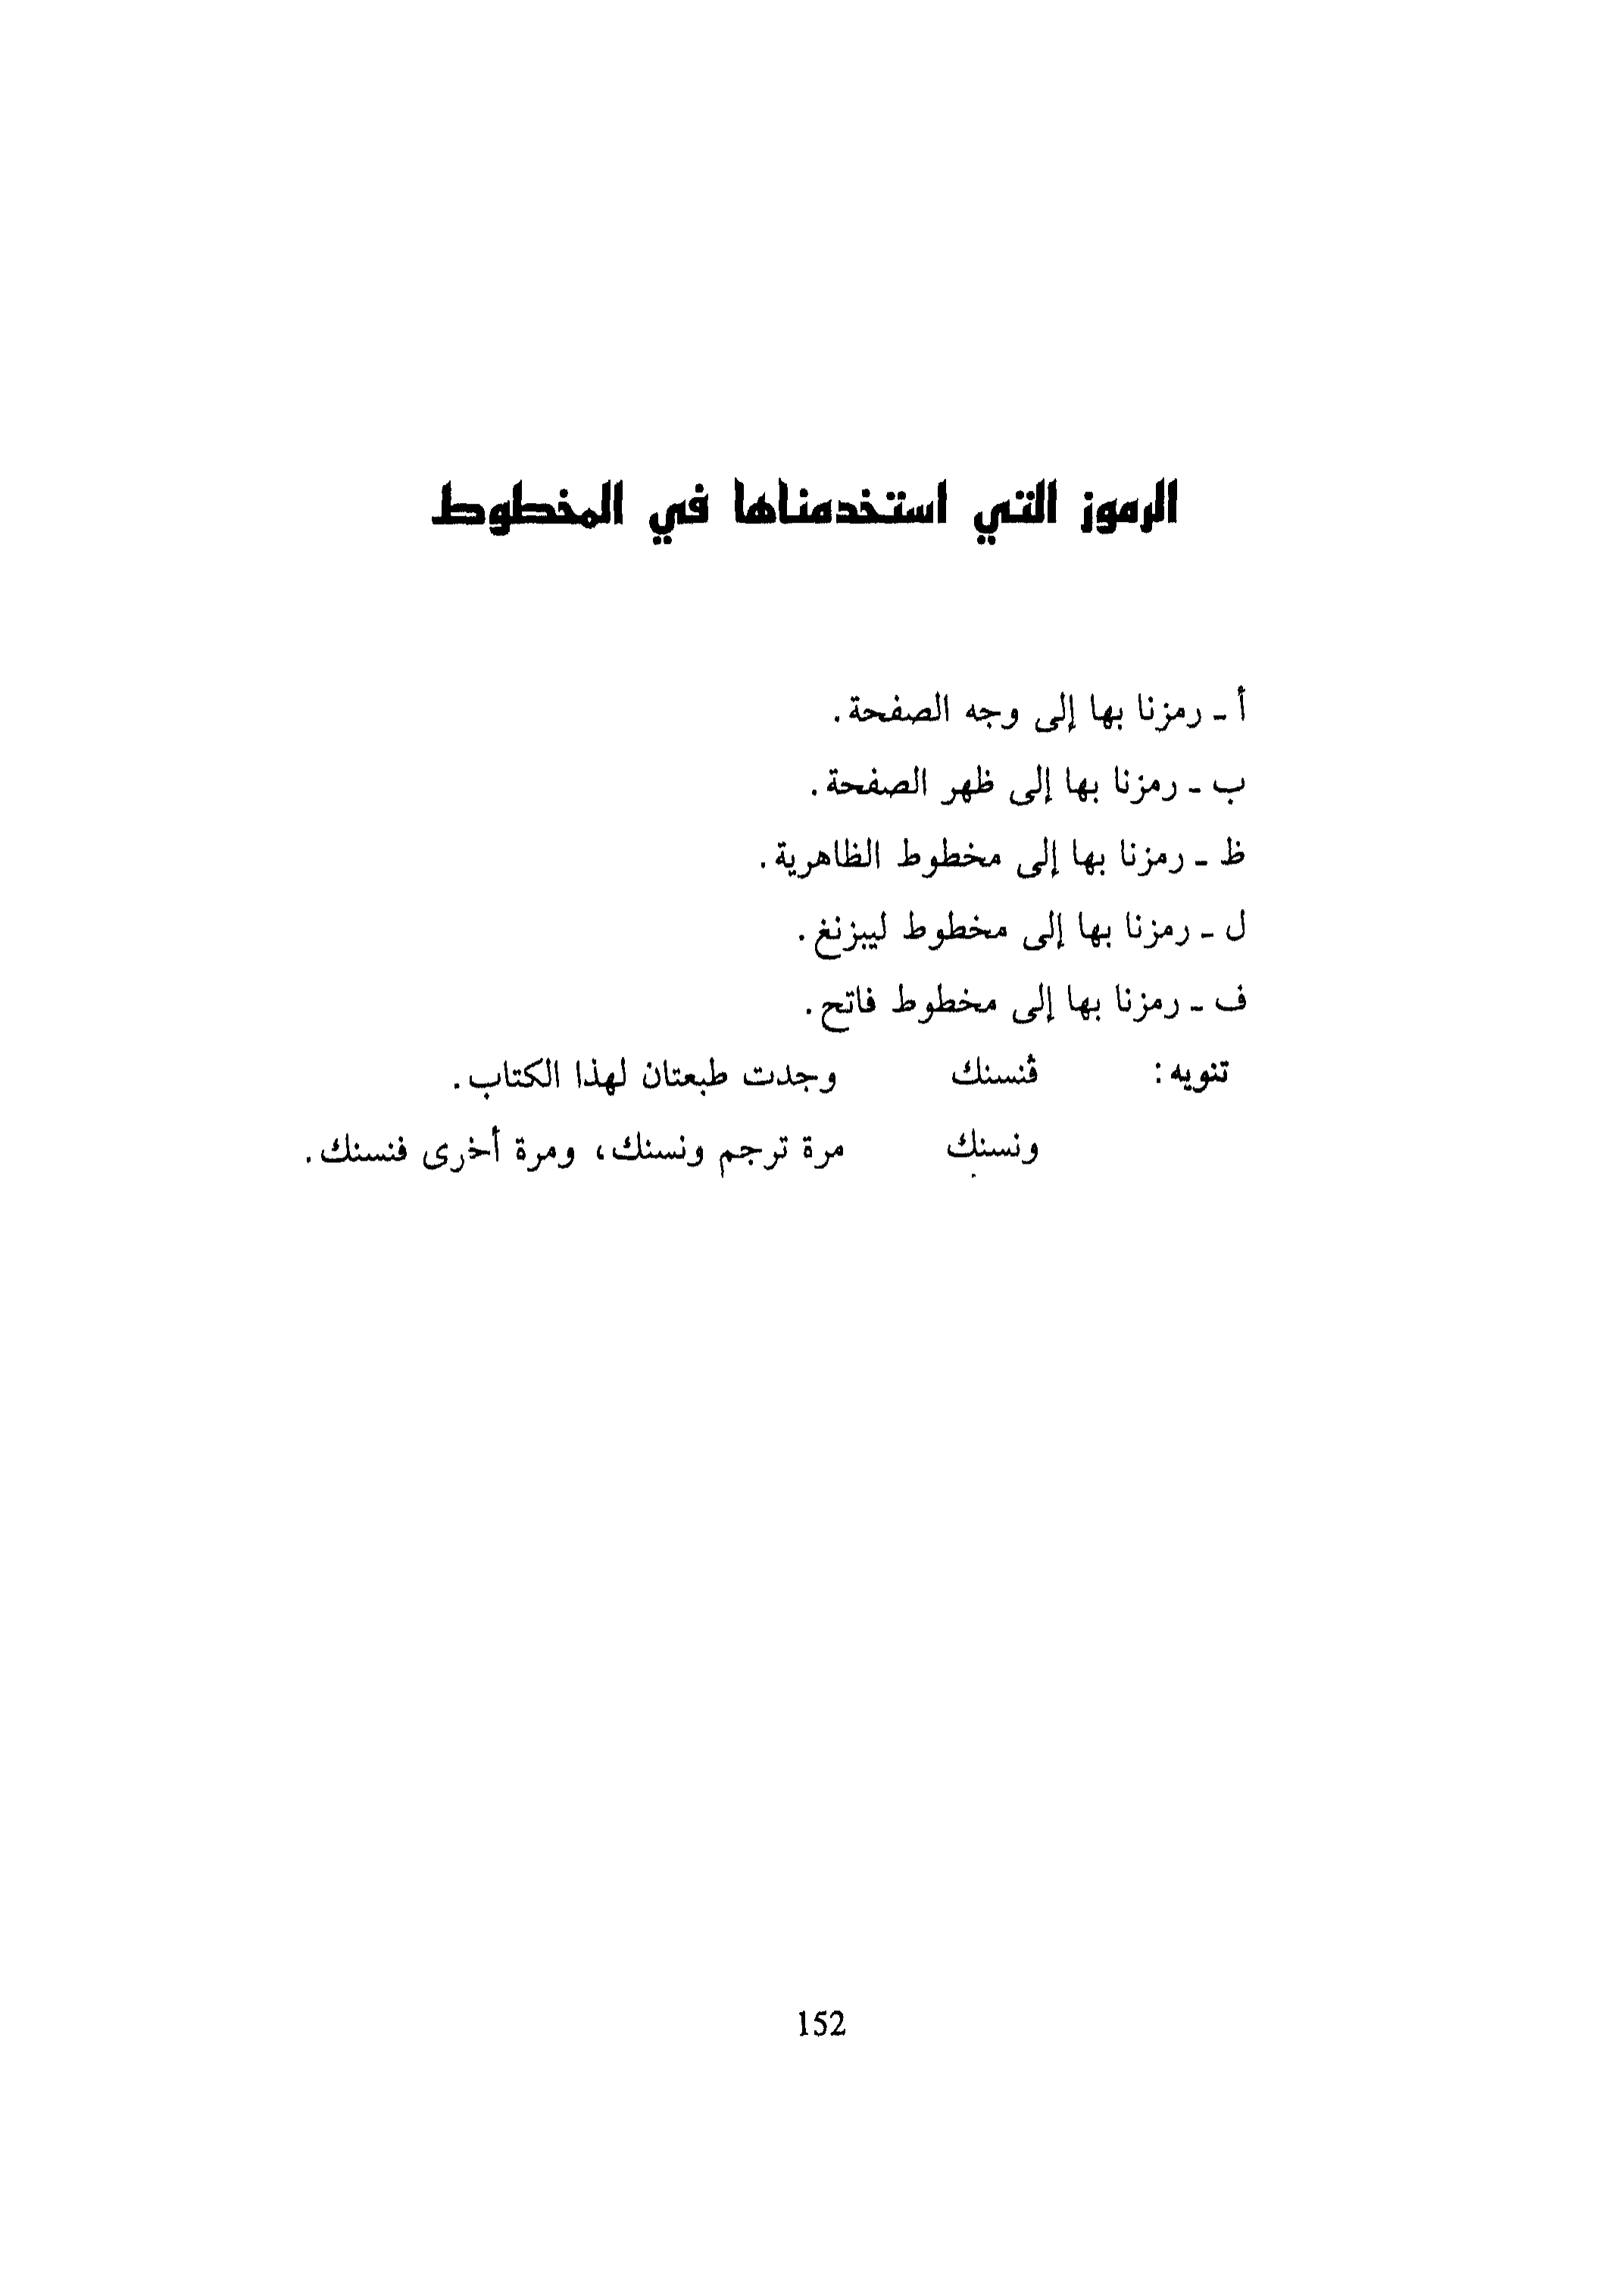 الرموز التي استخدمناها في المخطوط
أ ـ رمزنا بها إلى وجه الصفحة.
ب ـ رمزنا بها إلى ظهر الصفحة.
ظ ـ رمزنا بها إلى مخطوط الظاهرية.
ل ـ رمزنا بها إلى مخطوط ليبزنغ.
ف ـ رمزنا بها إلى مخطوط فاتح.
تنويه: ڤنسنك وجدت طبعتان لهذا الكتاب.
ونسنك مرة ترجم ونسنك، ومرة أخرى فنسنك.
152